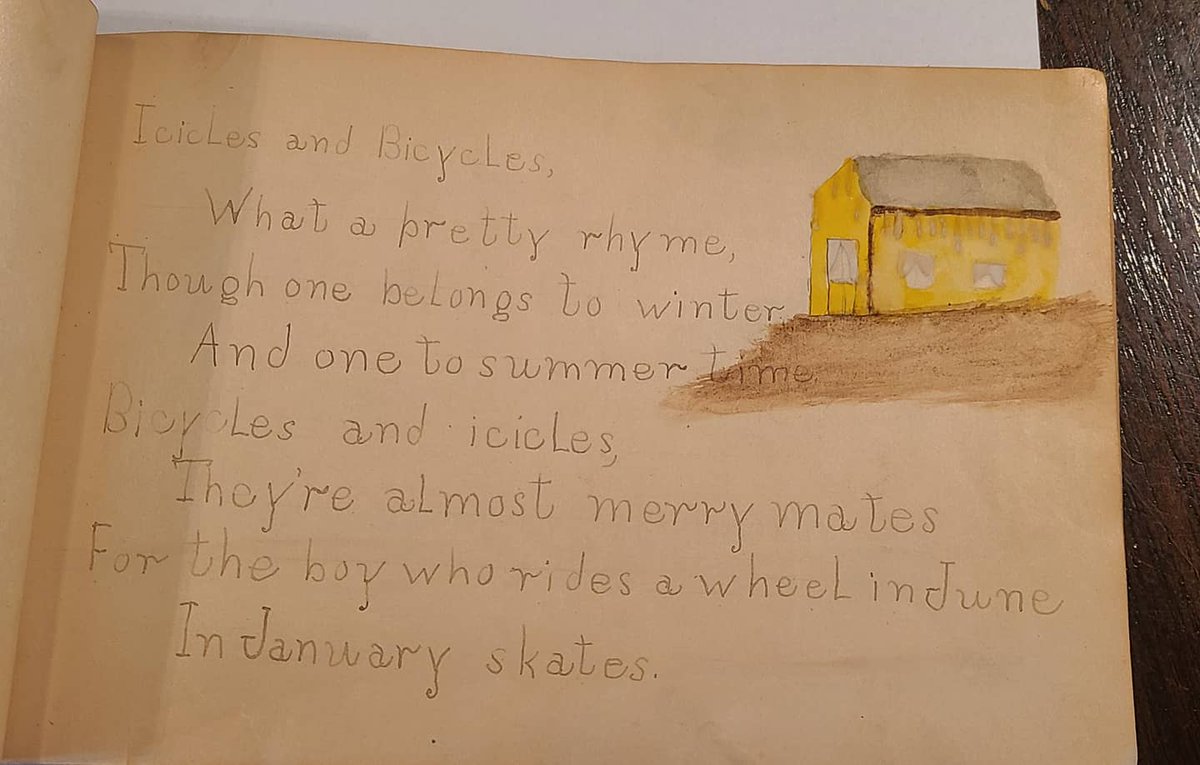 Icicles and Bicycles,
What a pretty rhyme,
Though one belongs to winter
And one to summer time.
Bicycles and icicles,
They're almost merry mates
For the boy who rides a wheel in June
In January skates.